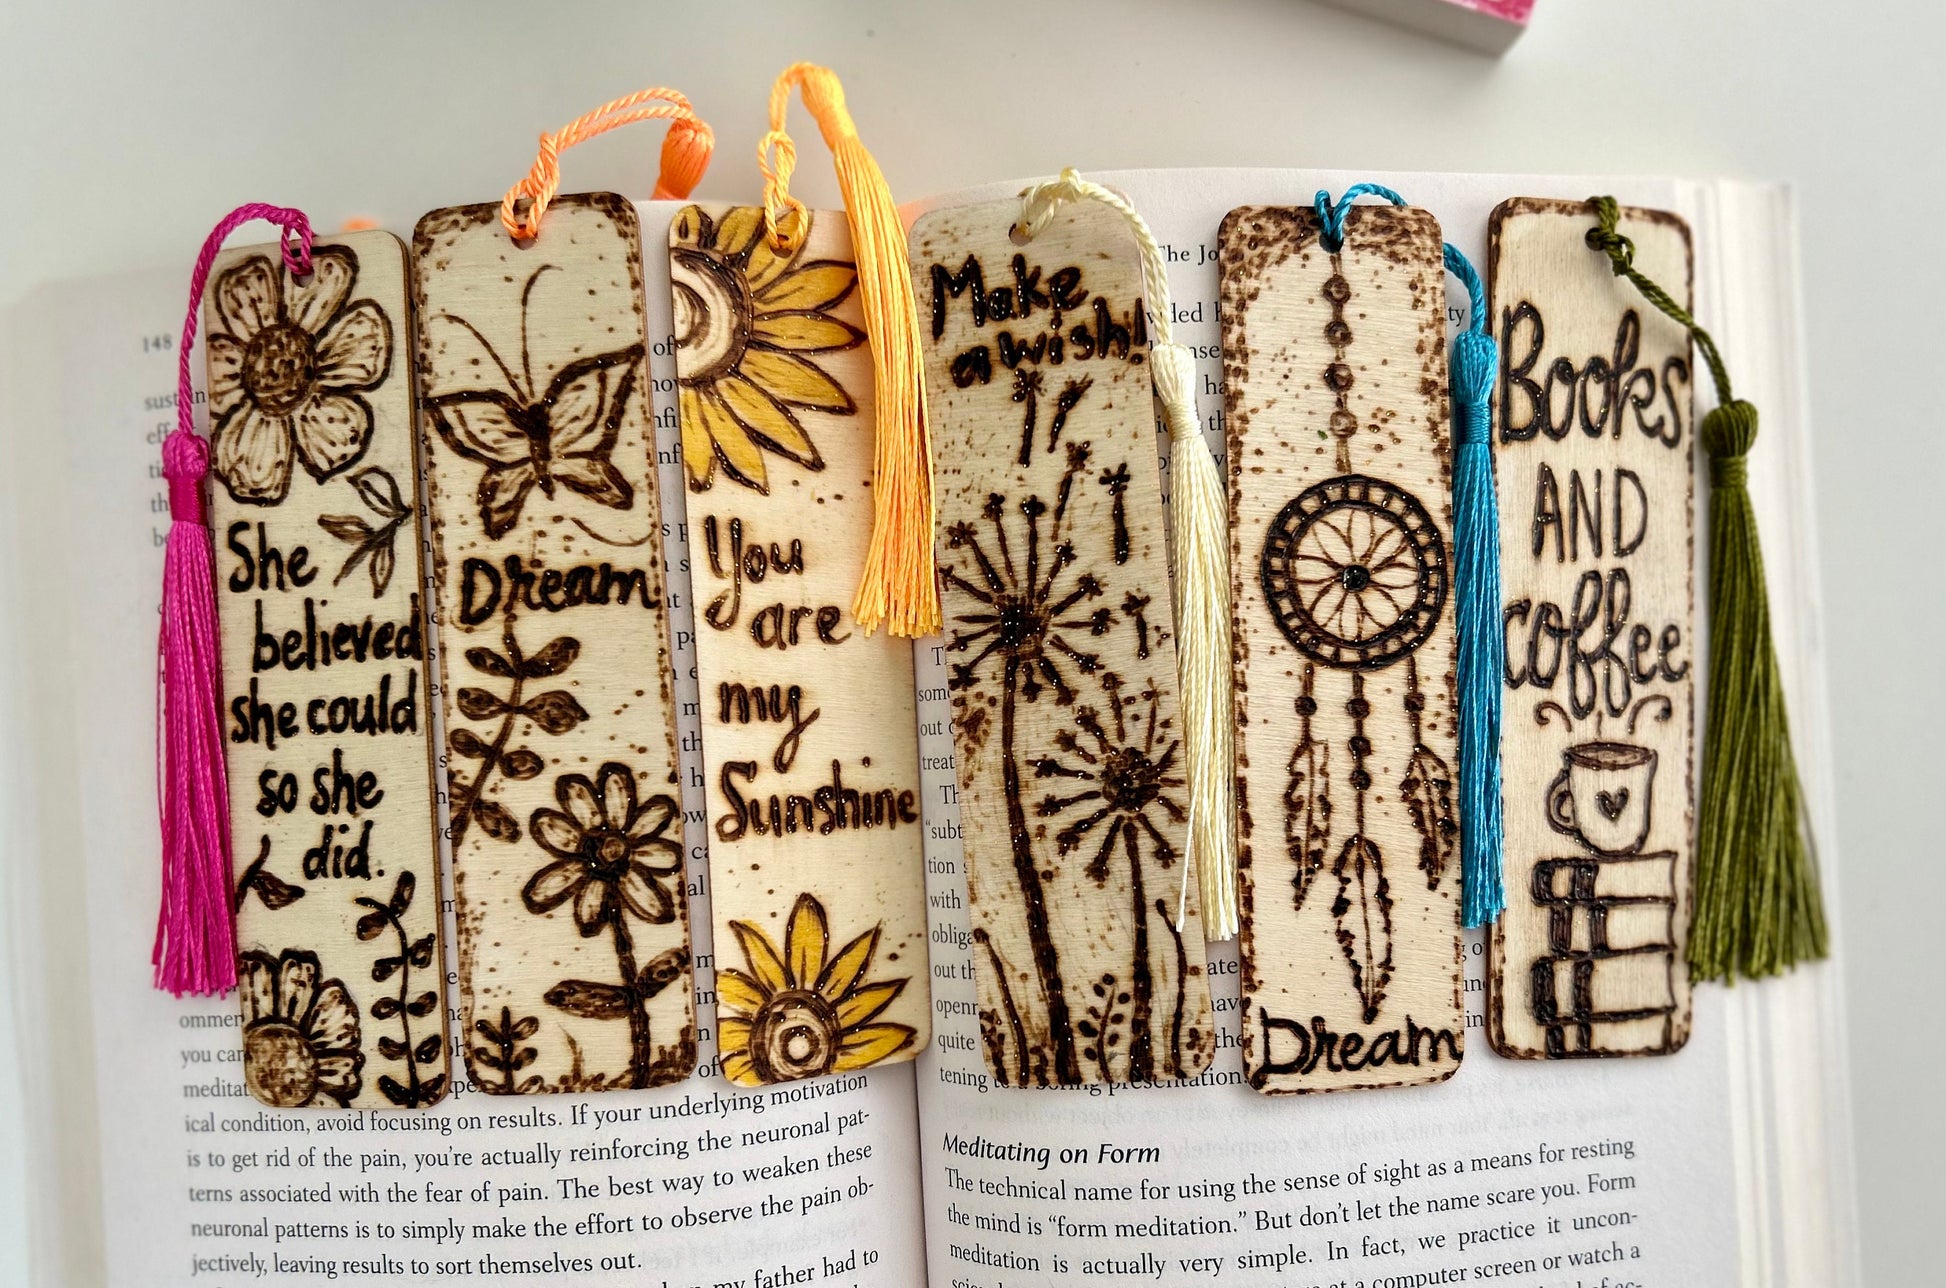 She
believed
she could
so she
did.
Dream
You
are
my
Sunshine
Make
a wish!
Dream
Books
AND
coffee
148
ical condition, avoid focusing on results. If your underlying motivation
is to get rid of the pain, you're actually reinforcing the neuronal pat-
terns associated with the fear of pain. The best way to weaken these
neuronal patterns is to simply make the effort to observe the pain ob-
jectively, leaving results to sort themselves out.
my father had to
The Jo
Meditating on Form
The technical name for using the sense of sight as a means for resting
the mind is “form meditation.” But don't let the name scare you. Form
meditation is actually very simple. In fact, we practice it uncon-
at a computer screen or watch a